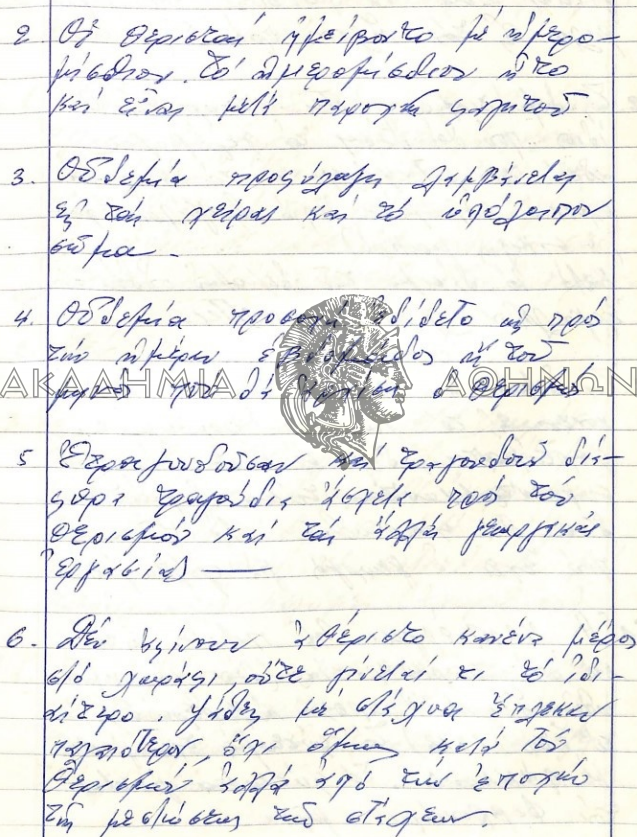 2. Οἱ θερισταί ἠμείβοντο μέ ἡμερο-
μίσθιον. Τό ἡμερομίσθιον ἦτο
καί εἶναι μετά παροχῆς φαγητοῦ
3. Οὐδεμία προφύλαξη λαμβάνεται
εἰς τάς χεῖρας καί τό ὑπόλοιπον
σῶμα.
4. Οὐδεμία προσοχή ἐδίδετο ὡς πρός
τήν ἡμέραν ἑβδομάδος ἤ τοῦ
μηνός πού θά ὁ θερισμός
ΑΚΑΔΗΜΙΑ ΑΘΗΝΩΝ
5 Ἐτραγουδοῦσαν καί τραγουδοῦν διά-
φορα τραγούδια ἄσχετα πρός τόν
θερισμόν καί τάς ἄλλας γεωργικάς
ἐργασίας —
6. Δέν ἀφίνουν ἀθέριστο κανένα μέρος
στό χωράφι, οὔτε γίνεται τι τό ἰδι-
αίτερο. Ψάθες μέ στάχυα ἔπλεκαν
παλαιότερον, ὄχι ὅμως κατά τόν
θερισμόν ἀλλά ἀπό τήν ἐποχήν
τῆς μεστώσεως τῶν στάχεων.